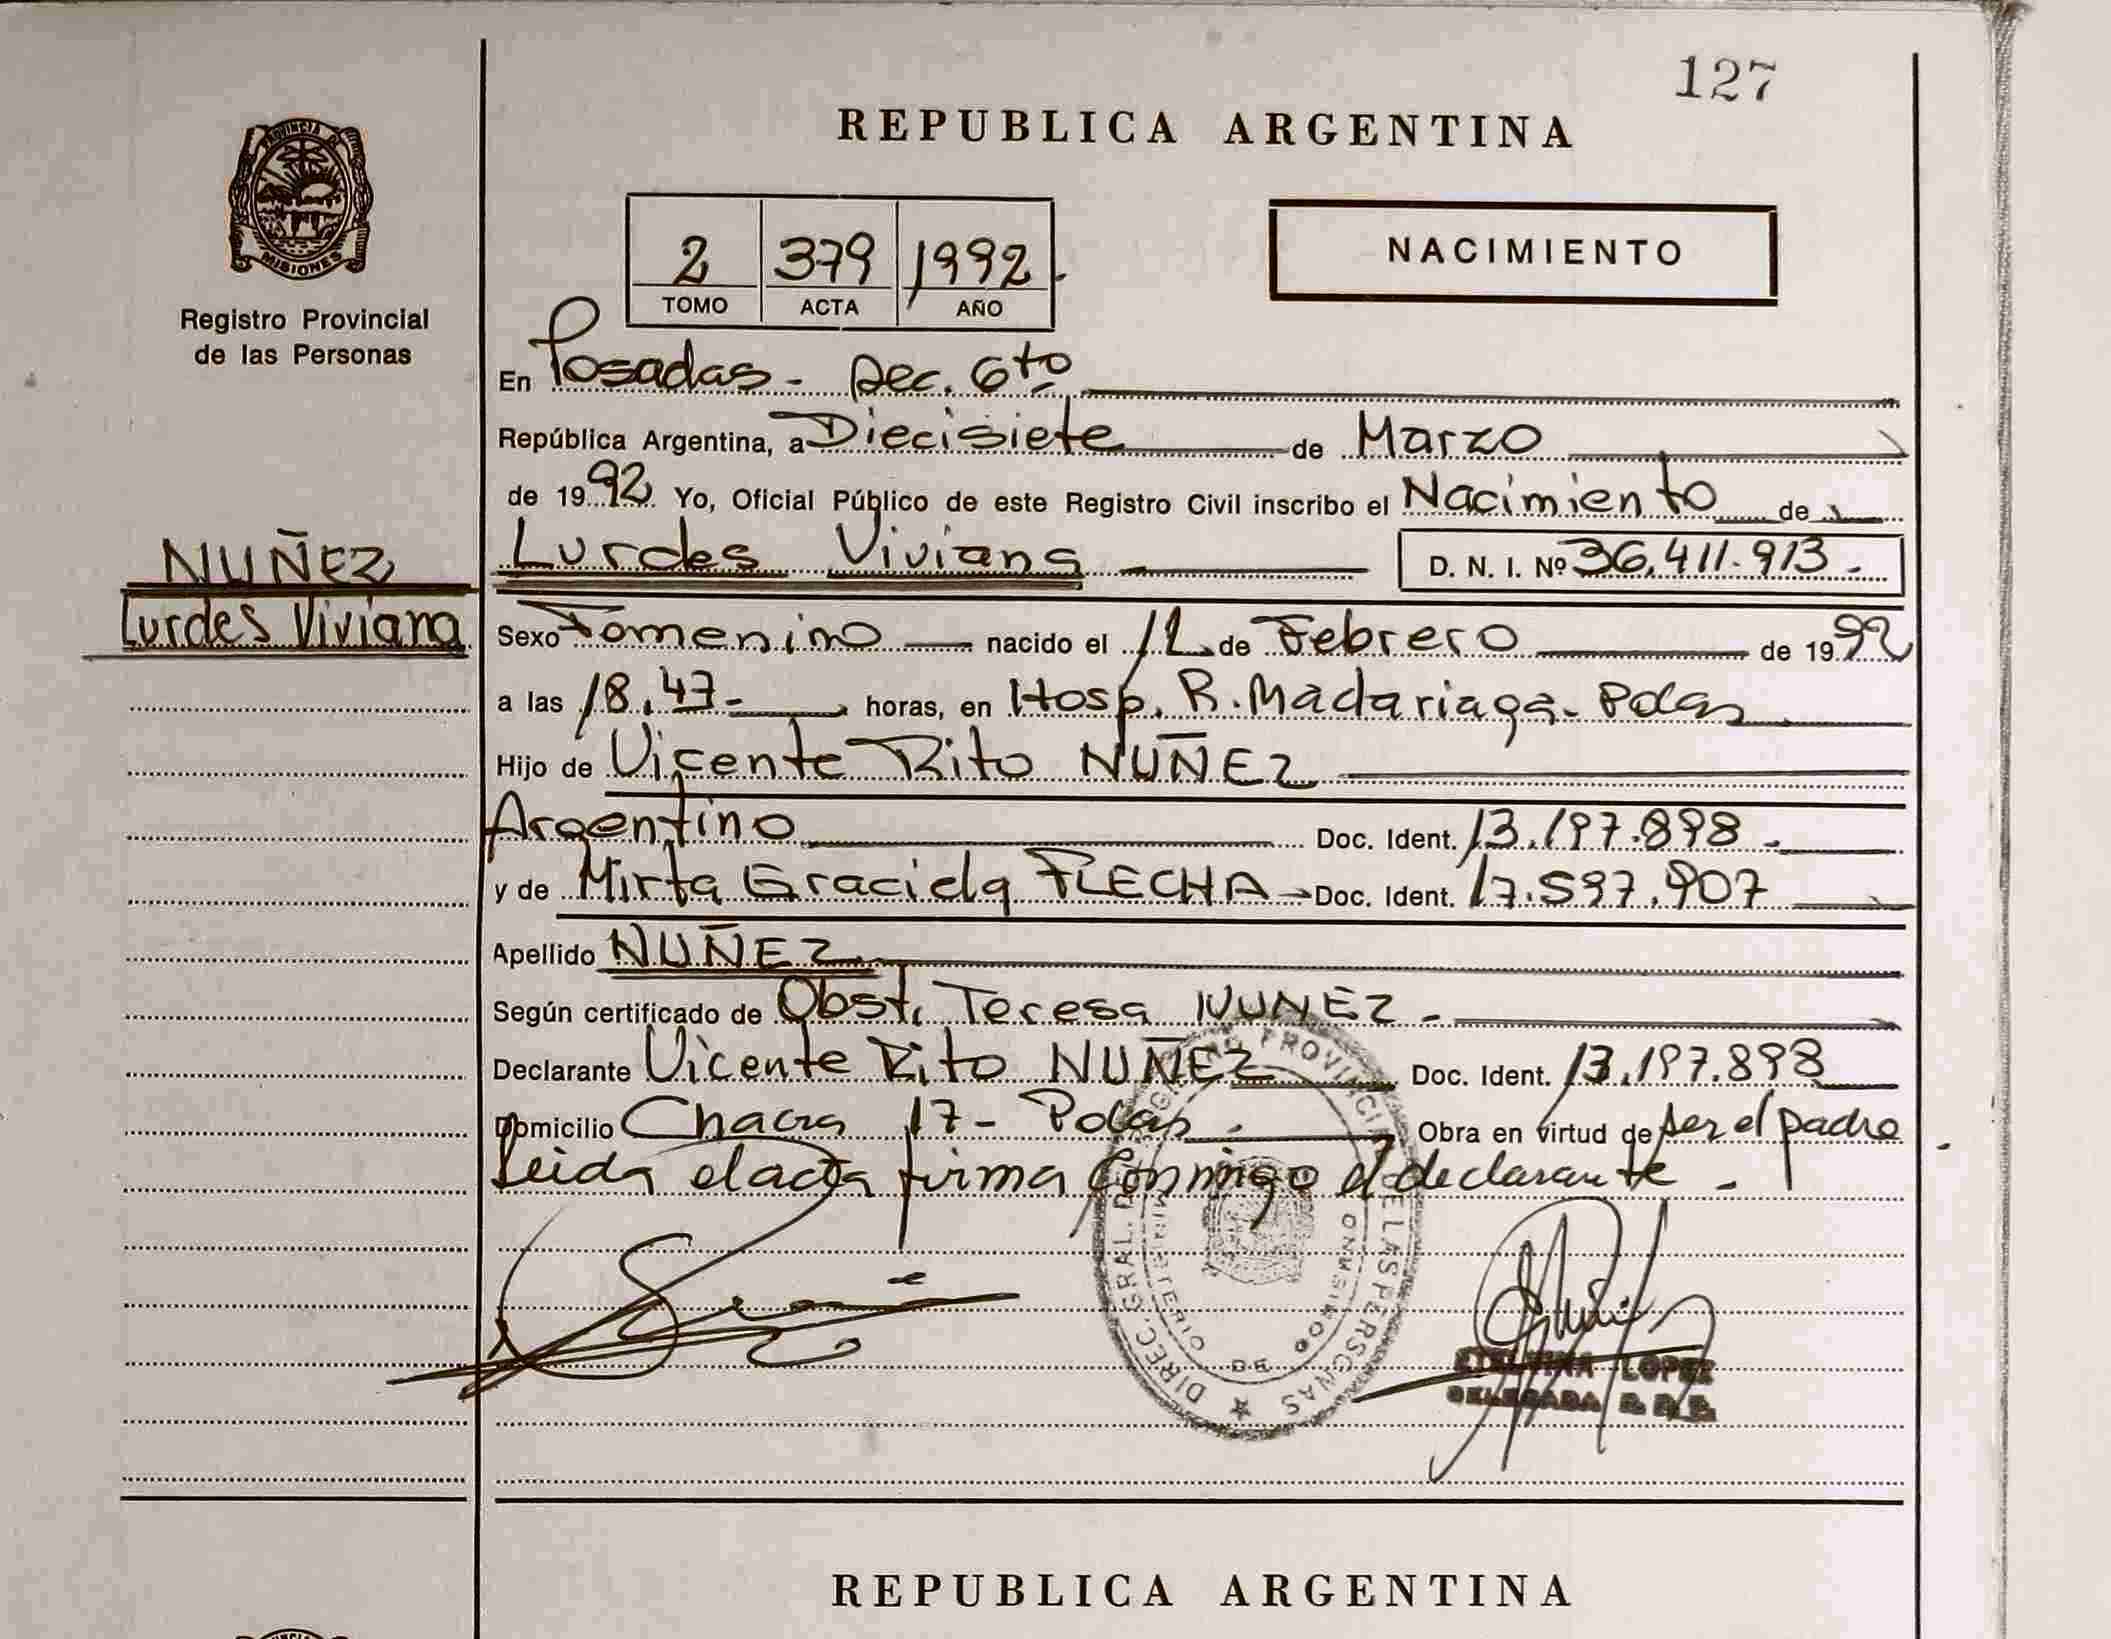 127
REPUBLICA ARGENTINA
PROVINCIA D
MISIONES
Registro Provincial
de las Personas
2 379 1992
TOMO ACTA AÑO
NACIMIENTO
En Posadas - Sec. 6to
República Argentina, a Diecisiete de Marzo
de 1992 Yo, Oficial Público de este Registro Civil inscribo el Nacimiento de
NUÑEZ
Lurdes Viviana
Lurdes Viviana D. N. I. Nº 36.411.913 -
Sexo Femenino nacido el 12 de Febrero de 1992
a las 18.47- horas, en Hosp. R. Madariaga - Pdas
Hijo de Vicente Rito NUÑEZ
Argentino Doc. Ident. 13.197.898 -
y de Mirta Graciela FLECHA Doc. Ident. 17.597.907
Apellido NUÑEZ
Según certificado de Obst. Teresa NUÑEZ -
Declarante Vicente Rito NUÑEZ Doc. Ident. 13.197.898
Domicilio Chacra 17 - Pdas. Obra en virtud de ser el padre
Leida el acta firma conmigo el declarante -
DIREC. GRAL. DEL REGISTRO PROVINCIAL DE LAS PERSONAS
MINISTERIO DE GOBIERNO
LOPEZ
DELEGADA R.P.P.
REPUBLICA ARGENTINA